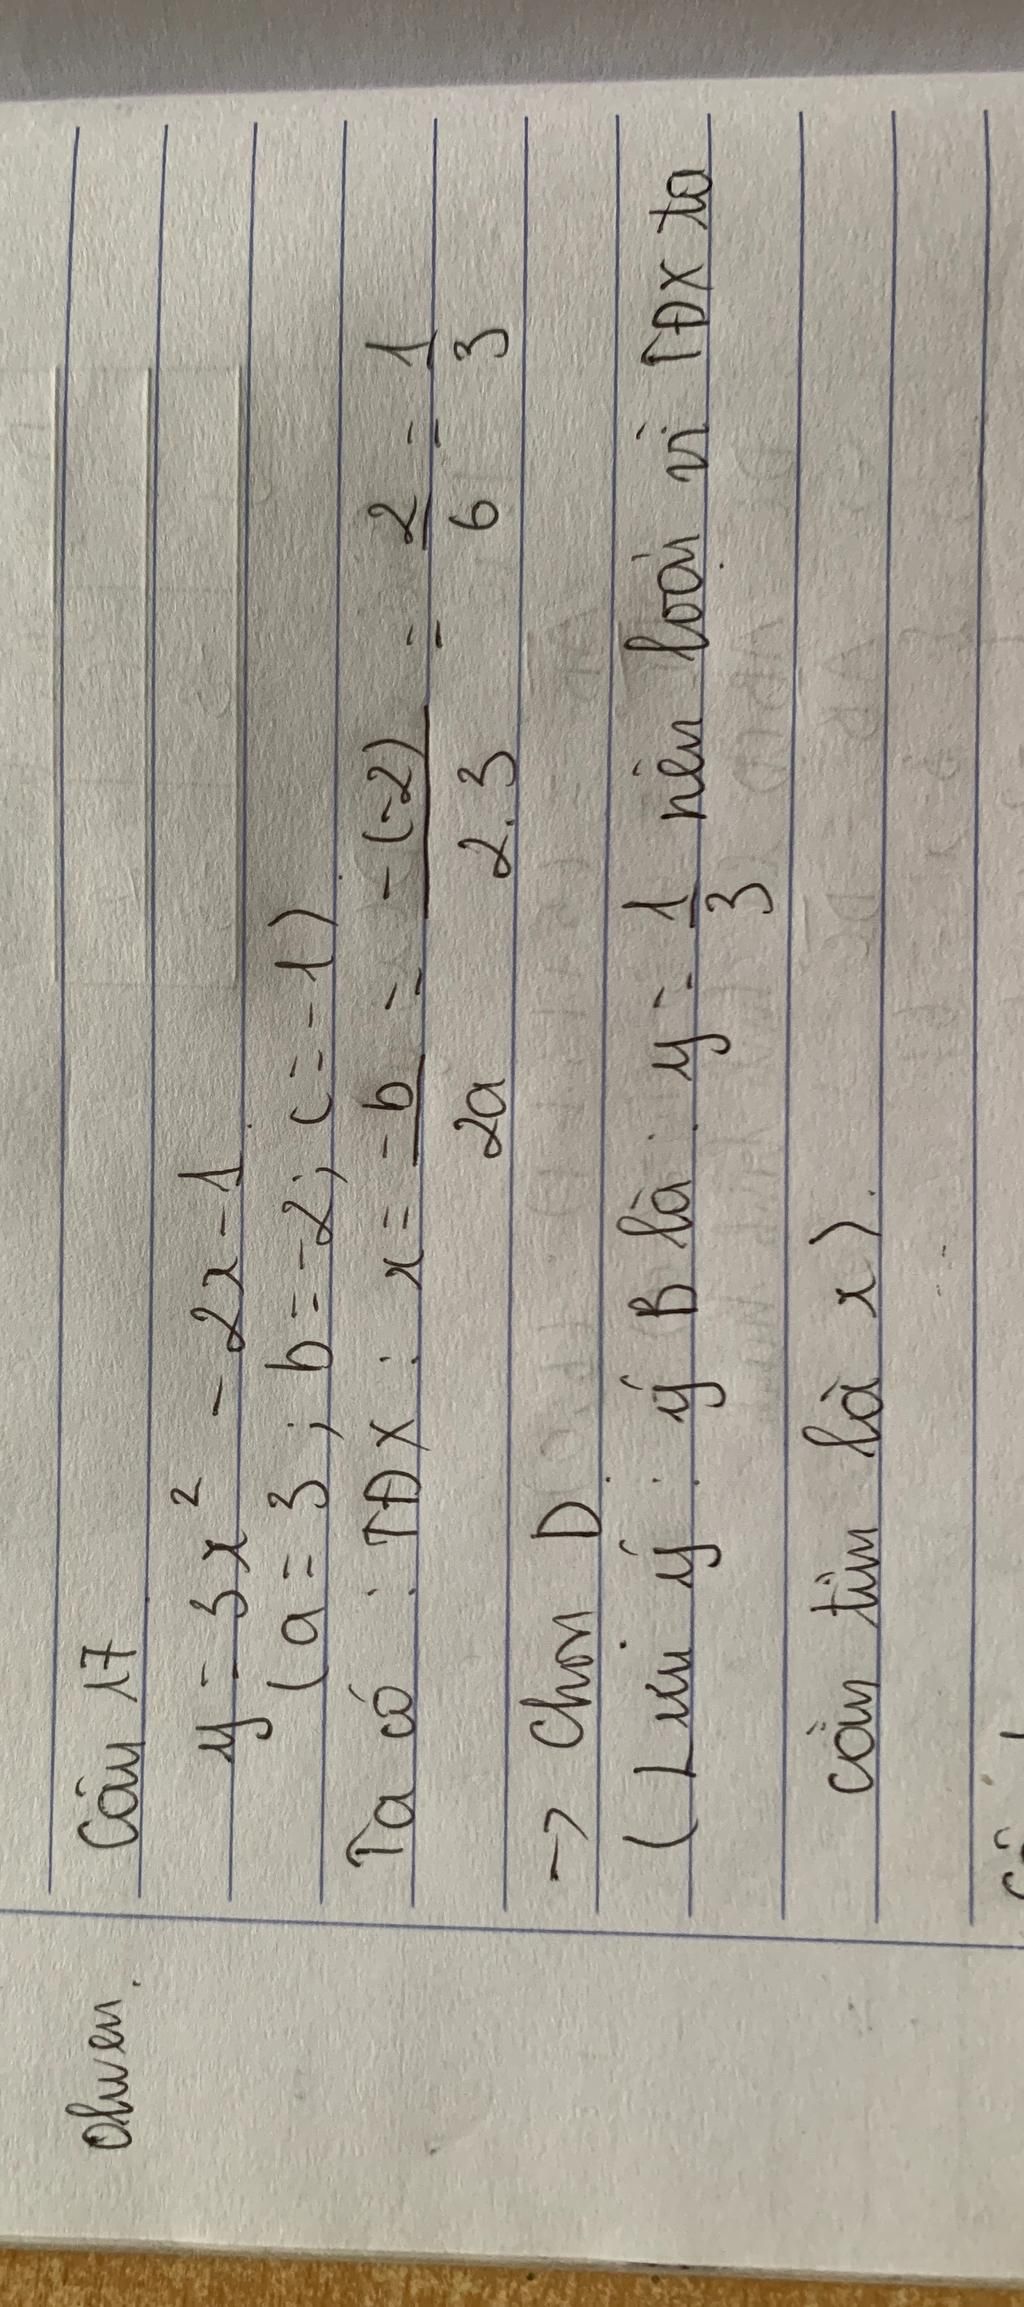 Olwen.
Câu 17
y = 3x² - 2x - 1
(a = 3 ; b = -2 ; c = -1)
Ta có : TĐX : x = -b/2a = -(-2)/2.3 = 2/6 = 1/3
→ Chọn D
(Lưu ý : ý B là : y = 1/3 nên loại vì TĐX ta
cần tìm là x).